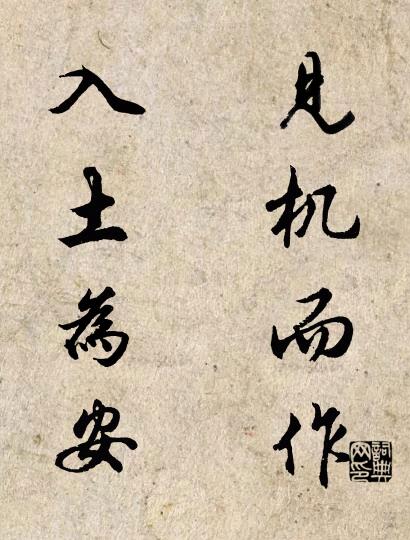 见机而作
入土為安
詞典
网印